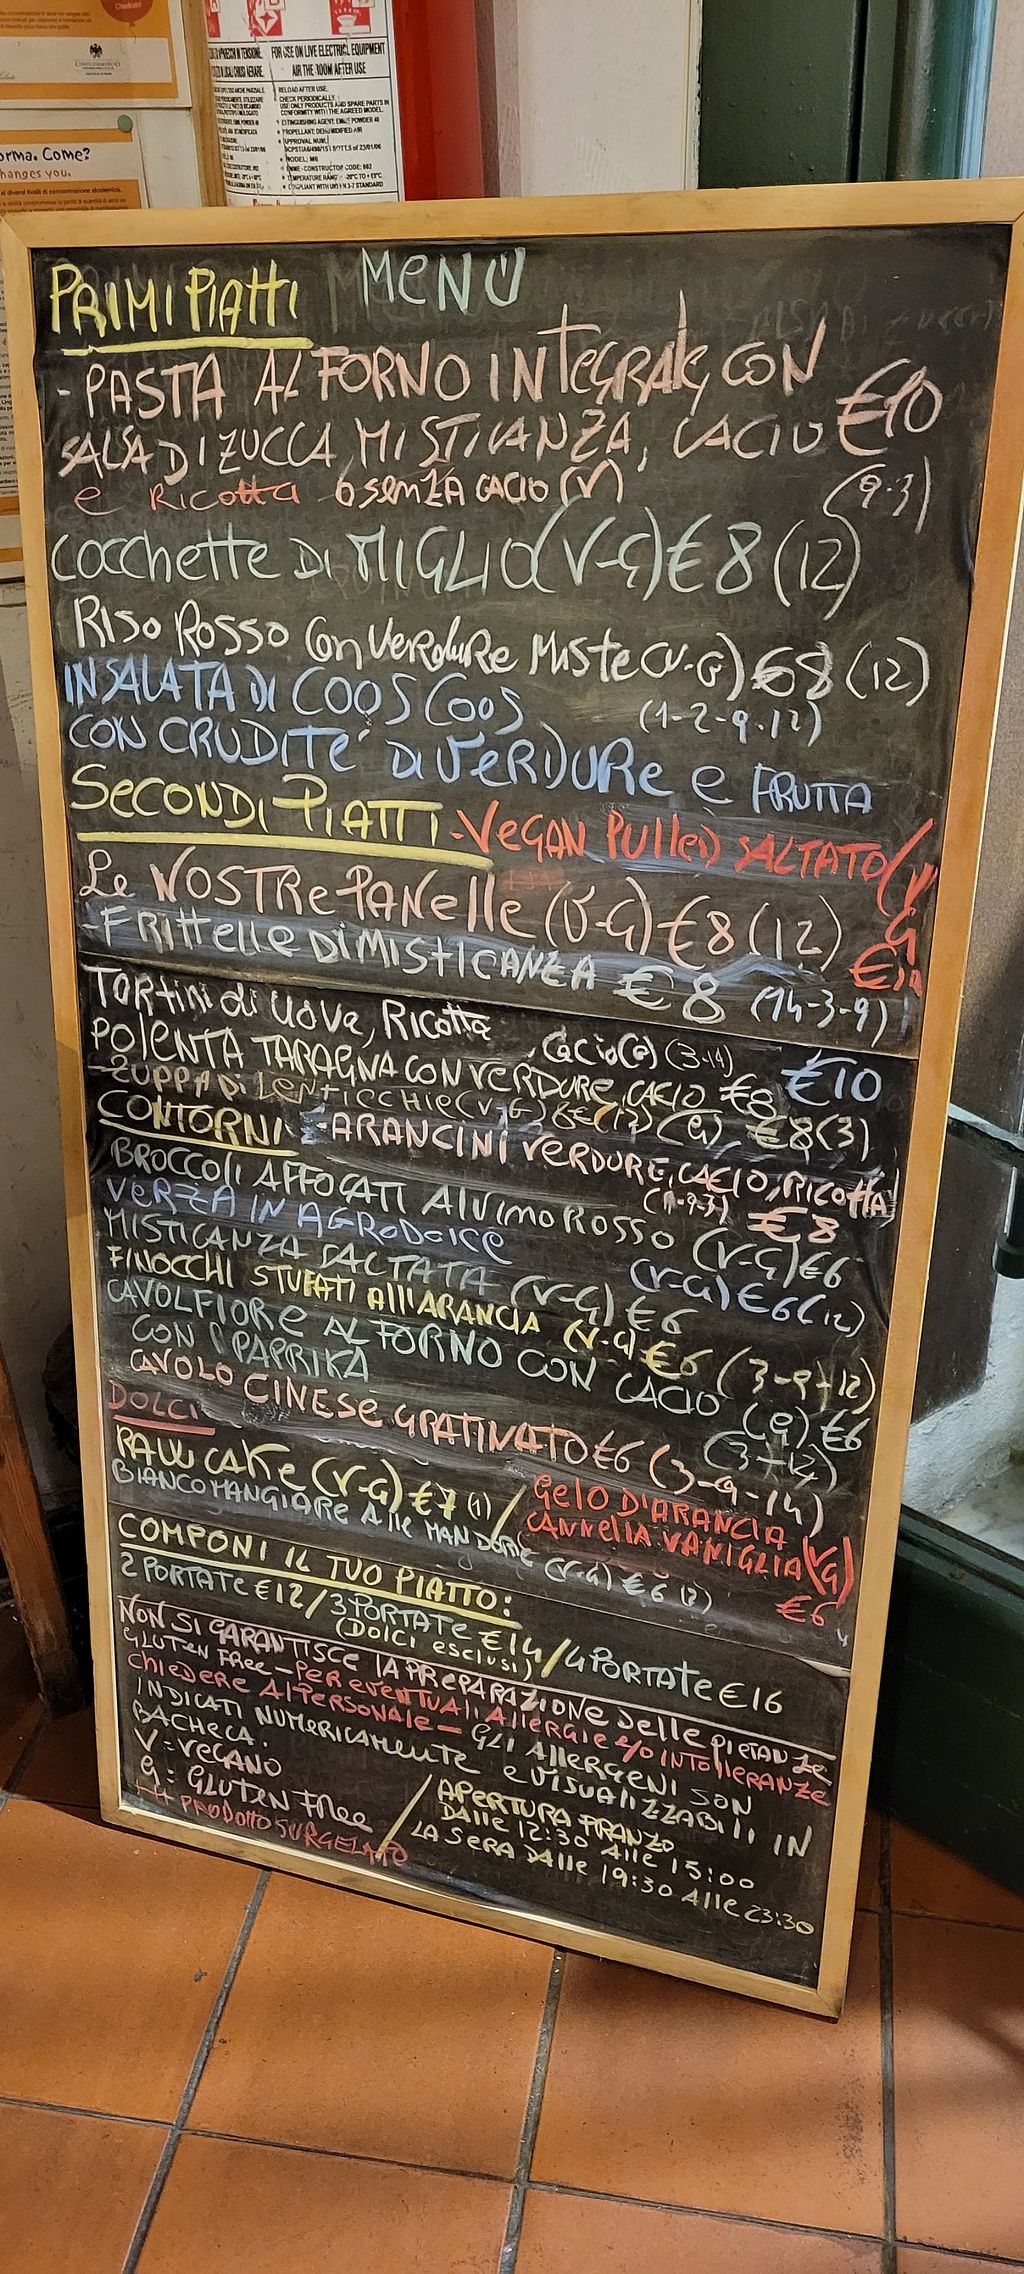 FOR USE ON LIVE ELECTRICAL EQUIPMENT
AIR THE ROOM AFTER USE
RELOAD AFTER USE.
CHECK PERIODICALLY.
USE ONLY PRODUCTS AND SPARE PARTS IN
CONFORMITY WITH THE AGREED MODEL.
orma. Come?
hanges you.
PRIMI PIATTI MENÙ
- PASTA AL FORNO INTEGRALE CON
SALSA DI ZUCCA, MISTICANZA, CACIO €10
e RICOTTA o senza CACIO (V) (9-3)
COCCHETTE DI MIGLIO (V-G) €8 (12)
RISO ROSSO CON VERDURE MISTE (V-G) €8 (12)
INSALATA DI COOS COOS (1-2-9-12)
CON CRUDITE' DI VERDURE e FRUTTA
SECONDI PIATTI - VEGAN PULLED SALTATO (V
Le NOSTRE PANELLE (V-G) €8 (12) G
- FRITTELLE DI MISTICANZA €8 (14-3-9)
TORTINI di UOVA, RICOTTA, CACIO (G) (3-14) €10
POLENTA TARAGNA CON VERDURE, CACIO €8
- ZUPPA DI LENTICCHIE (V-G) 8€ (12) (G) €8 (3)
CONTORNI - ARANCINI VERDURE, CACIO, RICOTTA
(1-9-3) €8
BROCCOLI AFFOGATI AL VINO ROSSO (V-G) €6
VERZA IN AGRODOLCE (V-G) €6 (12)
MISTICANZA SALTATA (V-G) €6
FINOCCHI STUFATI ALL'ARANCIA (V-G) €6 (3-9-12)
CAVOLFIORE AL FORNO CON CACIO (G) €6
CON PAPRIKA (3-12)
CAVOLO CINESE GRATINATO €6 (3-9-14)
DOLCI
RAW CAKE (V-G) €7 / GELO D'ARANCIA
CANNELLA VANIGLIA (V G) €6
BIANCOMANGIARE ALLE MANDORLE (V-G) €6
COMPONI IL TUO PIATTO:
2 PORTATE €12 / 3 PORTATE €14 / 4 PORTATE €16
(DOLCI esclusi)
NON SI GARANTISCE LA PREPARAZIONE DELLE PIETANZE
GLUTEN FREE - PER EVENTUALI ALLERGIE e/o INTOLLERANZE
CHIEDERE AL PERSONALE - GLI ALLERGENI SON
INDICATI NUMERICAMENTE e VISUALIZZABILI IN
BACHECA.
V = VEGANO
G : GLUTEN FREE
PRODOTTO SURGELATO
/ APERTURA PRANZO
DALLE 12:30 ALLE 15:00
LA SERA DALLE 19:30 ALLE 23:30